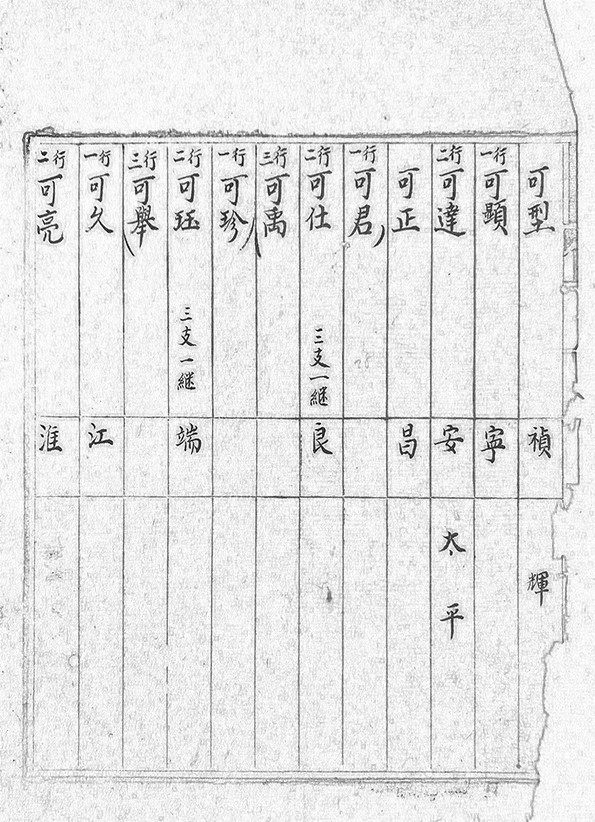 可型 禎 輝
一行 可顯 寧
二行 可達 安 太平
可正 昌
一行 可君
二行 可仕 三支一継 良
三行 可禹
一行 可珍
二行 可珏 三支一継 端
三行 可舉
一行 可久 江
二行 可亮 淮